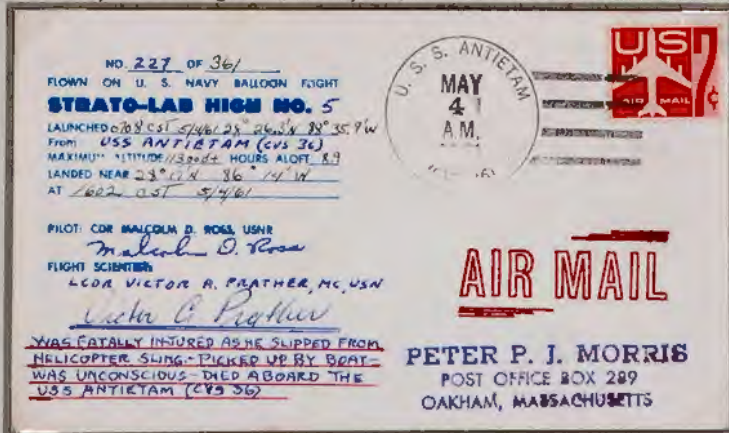 NO. 227 OF 361
FLOWN ON U. S. NAVY BALLOON FLIGHT
STRATO-LAB HIGH NO. 5
LAUNCHED 0708 CST 5/4/61 28° 26.3'N 88° 35.9'W
From USS ANTIETAM (CVS 36)
MAXIMUM ALTITUDE 113000+ HOURS ALOFT 8.9
LANDED NEAR 28° 17'N 86° 14'W
AT 1602 CST 5/4/61
PILOT: CDR MALCOLM D. ROSS, USNR
Malcolm D. Ross
FLIGHT SCIENTIST:
LCDR VICTOR A. PRATHER, MC, USN
Victor A Prather
WAS FATALLY INJURED AS HE SLIPPED FROM
HELICOPTER SLING - PICKED UP BY BOAT -
WAS UNCONSCIOUS - DIED ABOARD THE
USS ANTIETAM (CVS 36)
U. S. S. ANTIETAM
MAY
4
A.M.
US
AIR MAIL
7¢
AIR MAIL
PETER P. J. MORRIS
POST OFFICE BOX 289
OAKHAM, MASSACHUSETTS